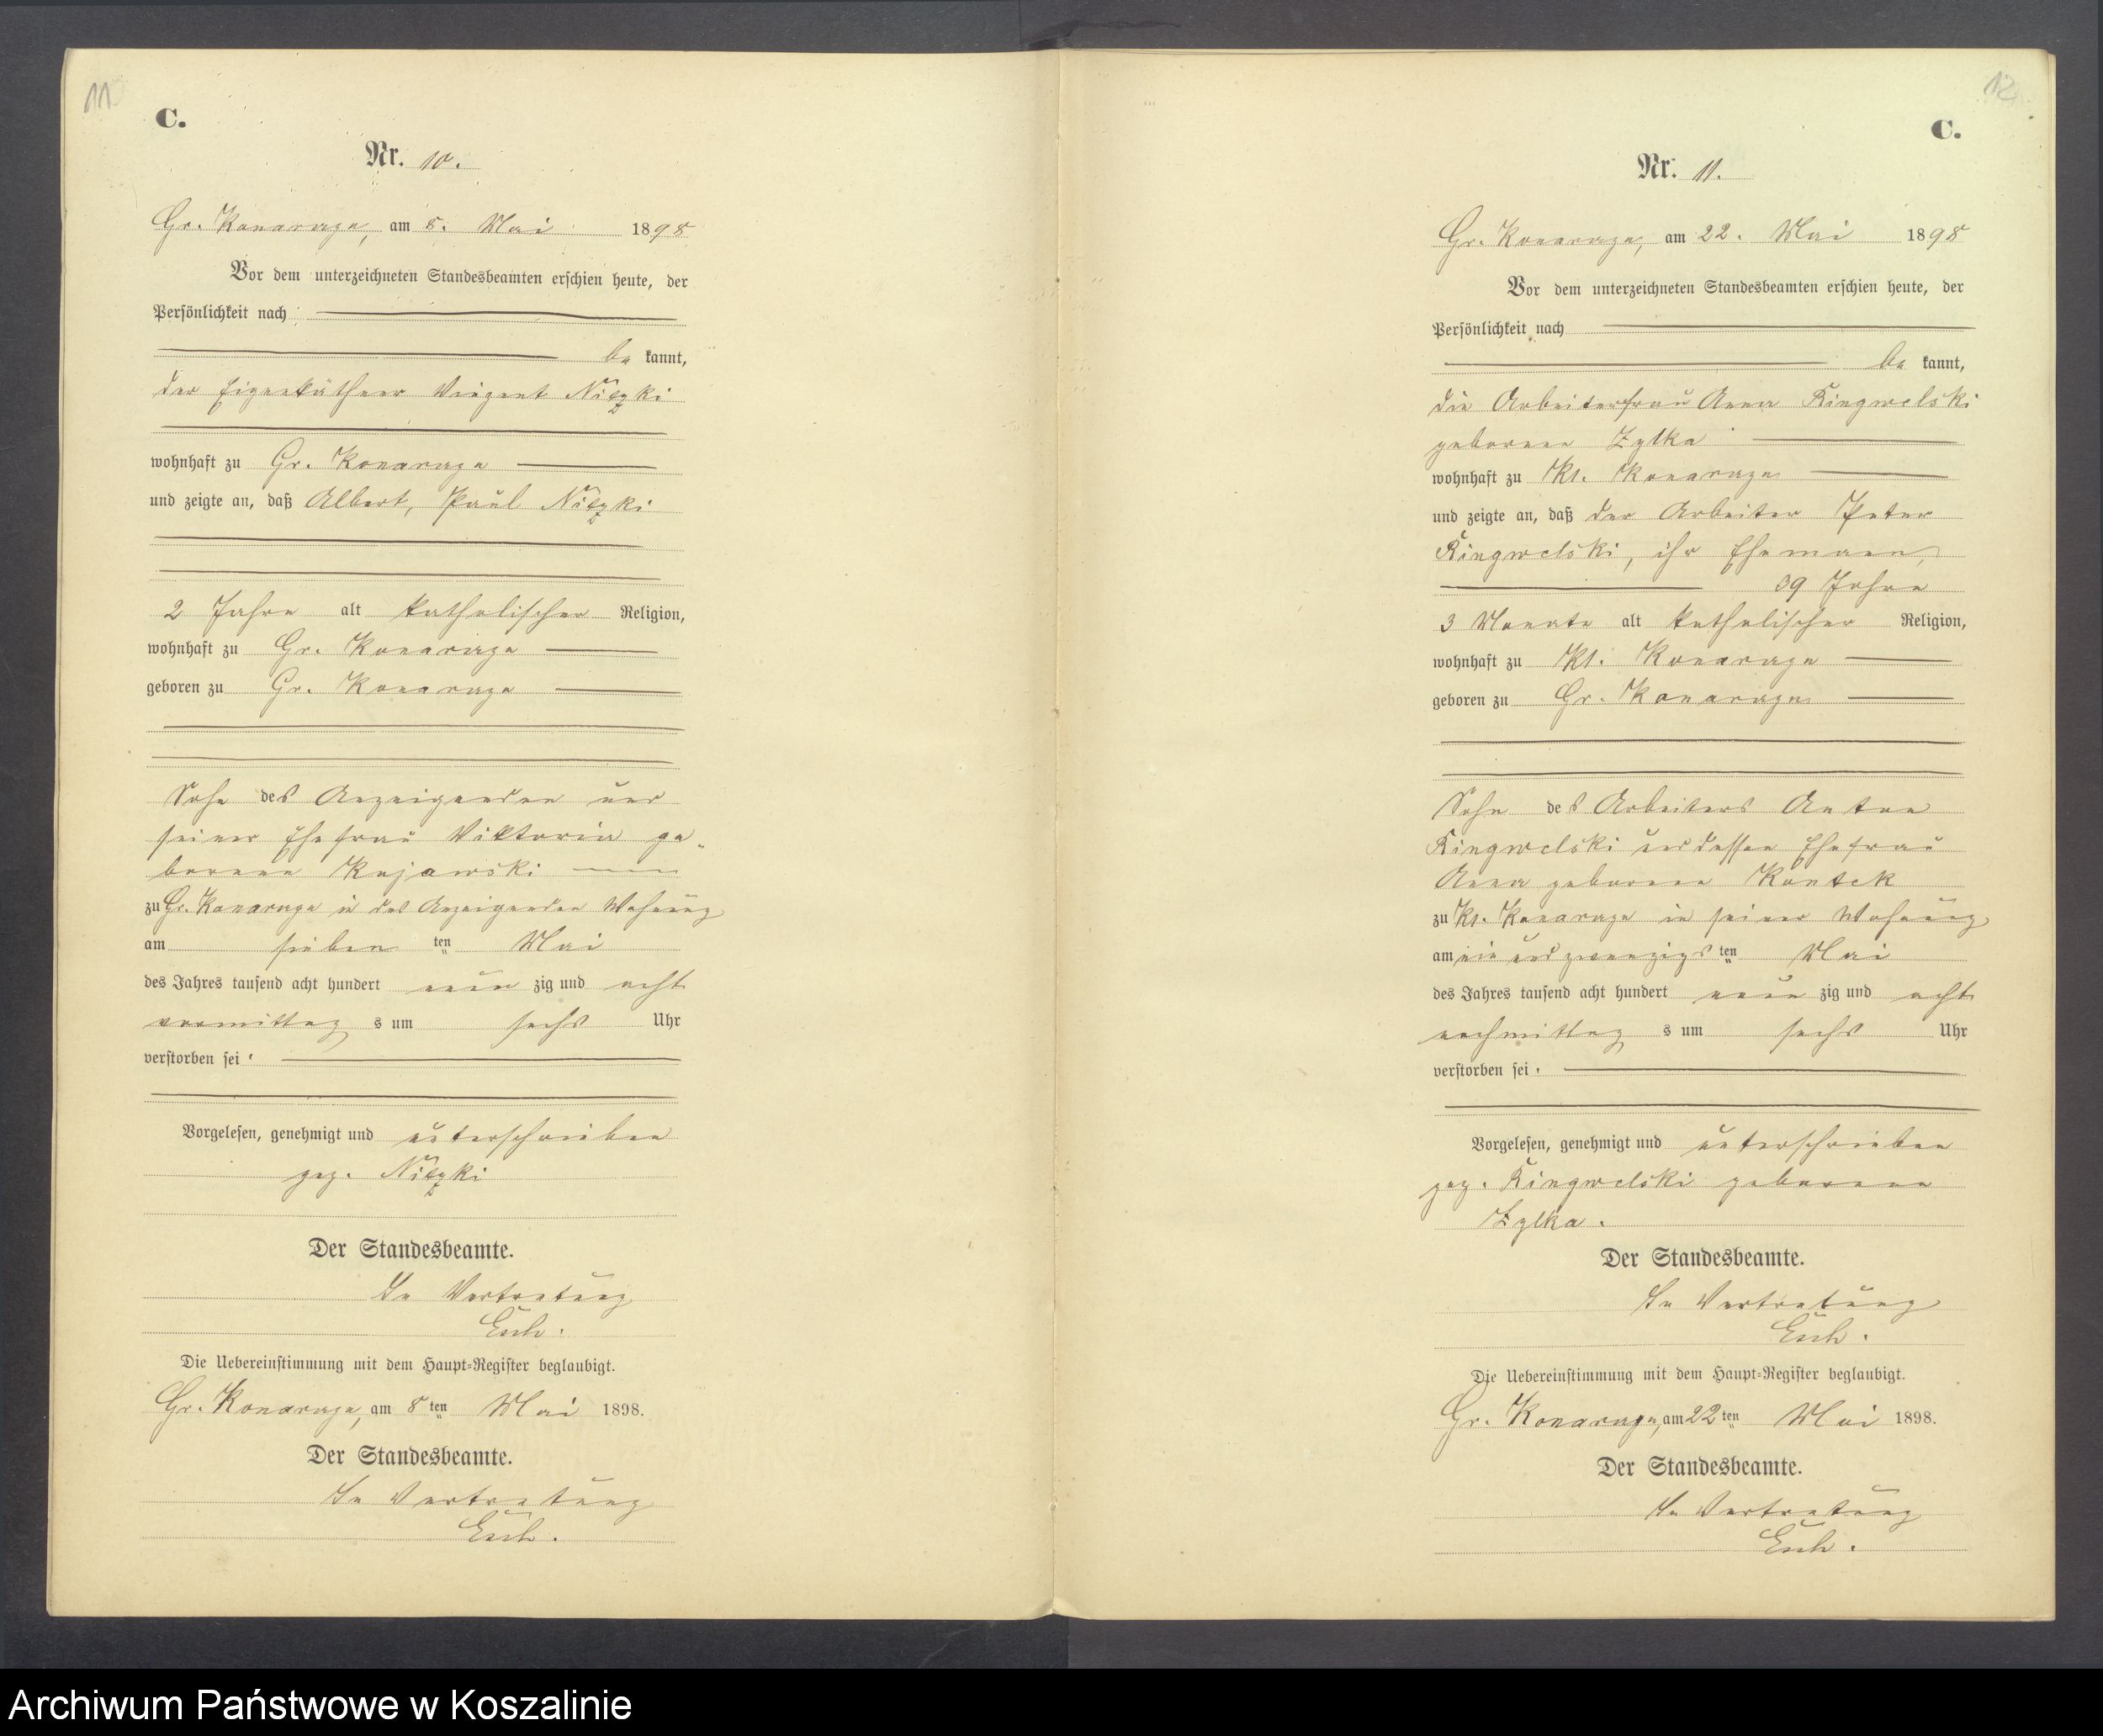 11
C.
Nr. 10.
Gr. Konarzyn, am 8. Mai 1898
Vor dem unterzeichneten Standesbeamten erschien heute, der
Persönlichkeit nach
be kannt,
der Eigenkäthner Vinzent
wohnhaft zu Gr. Konarzyn
und zeigte an, daß Albert, Paul
2 Jahre alt katholischer Religion,
wohnhaft zu Gr. Konarzyn
geboren zu Gr. Konarzyn
Sohn des Anzeigenden und
seiner Ehefrau Viktoria ge-
borene Kujawski
zu Gr. Konarzyn in des Anzeigenden Wohnung
am sieben ten Mai
des Jahres tausend acht hundert neun zig und acht
vormittag s um sechs Uhr
verstorben sei.
Vorgelesen, genehmigt und unterschrieben
gez.
Der Standesbeamte.
In Vertretung
Die Uebereinstimmung mit dem Haupt-Register beglaubigt.
Gr. Konarzyn, am 8 ten Mai 1898.
Der Standesbeamte.
In Vertretung
12
C.
Nr. 11.
Gr. Konarzyn, am 22. Mai 1898
Vor dem unterzeichneten Standesbeamten erschien heute, der
Persönlichkeit nach
be kannt,
die Arbeiterfrau Anna Kingwelski
geborene Zylka
wohnhaft zu Kl. Konarzyn
und zeigte an, daß der Arbeiter Peter
Kingwelski, ihr Ehemann,
39 Jahre
3 Monate alt katholischer Religion,
wohnhaft zu Kl. Konarzyn
geboren zu Gr. Konarzyn
Sohn des Arbeiters Anton
Kingwelski und dessen Ehefrau
Anna geborene Kontek
zu Kl. Konarzyn in seiner Wohnung
am ein und zwanzigs ten Mai
des Jahres tausend acht hundert neun zig und acht
nachmittag s um sechs Uhr
verstorben sei.
Vorgelesen, genehmigt und unterschrieben
gez. Kingwelski geborene
Zylka.
Der Standesbeamte.
In Vertretung
Die Uebereinstimmung mit dem Haupt-Register beglaubigt.
Gr. Konarzyn, am 22 ten Mai 1898.
Der Standesbeamte.
In Vertretung
Archiwum Państwowe w Koszalinie